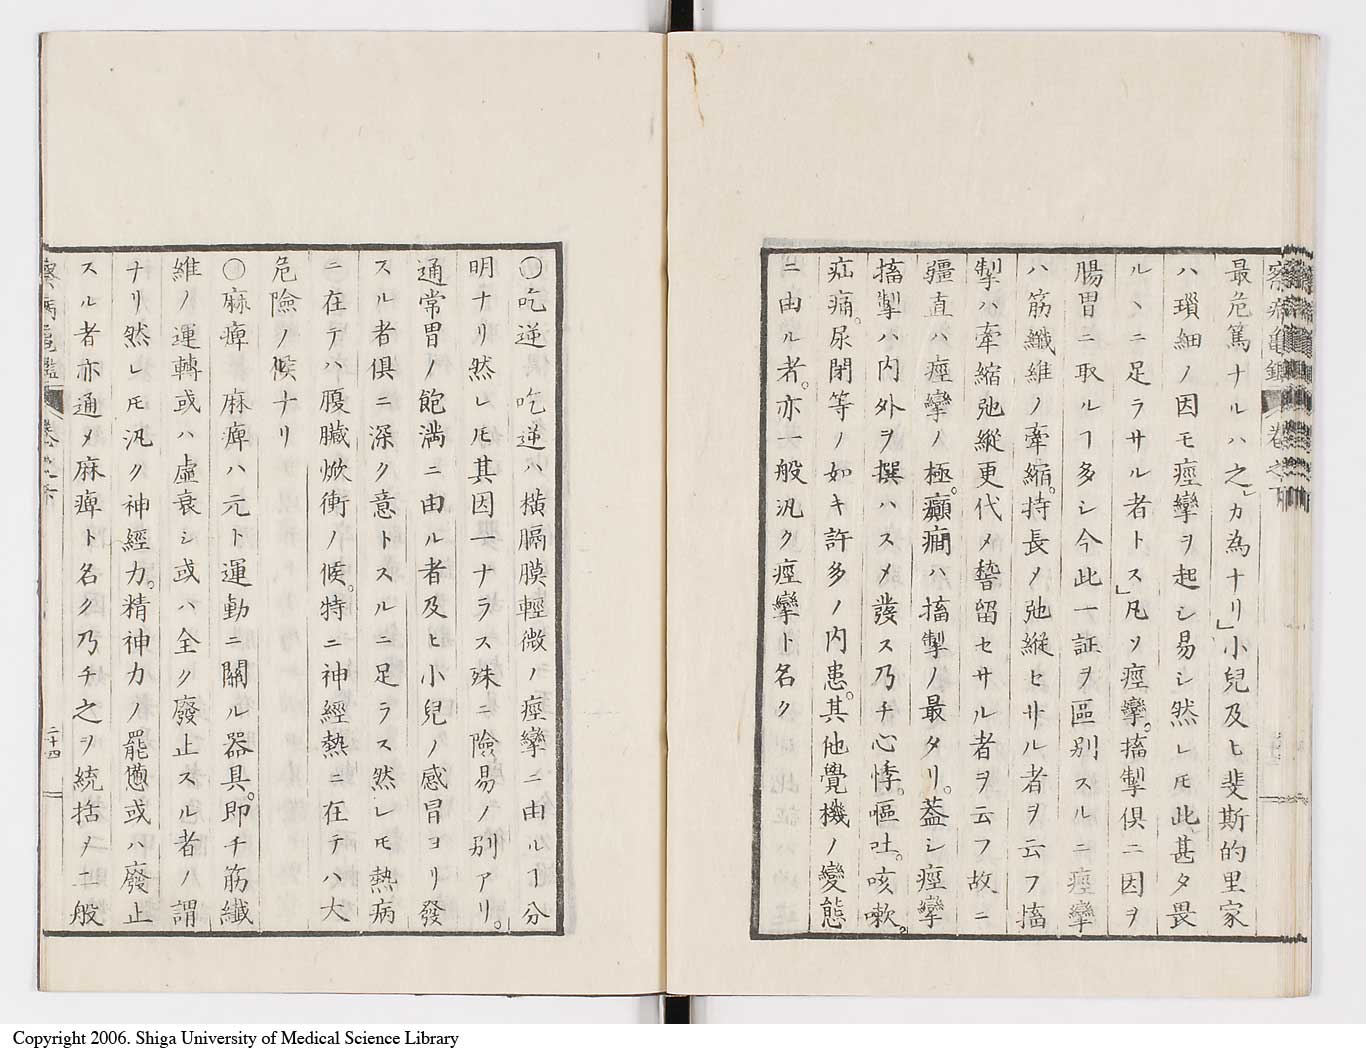 最危篤ナルハ之」カ為ナリ」小兒及ヒ斐斯的里家
ハ瑣細ノ因モ痙攣ヲ起シ易シ然レㄷ此甚タ畏
ルヽニ足ラサル者トス」凡ソ痙攣。搐掣倶ニ因ヲ
腸胃ニ取ルヿ多シ今此一証ヲ區別スルニ痙攣
ハ筋纖維ノ牽縮。持長〆弛縦セサル者ヲ云フ搐
掣ハ牽縮弛縦更代〆暬留セサル者ヲ云フ故ニ
彊直ハ痙攣ノ極。癲癇ハ搐掣ノ最タリ。葢シ痙攣
搐掣ハ内外ヲ撰ハス〆發ス乃チ心悸。嘔吐。咳嗽。
疝痛。尿閉等ノ如キ許多ノ内患。其他覺機ノ變態
ニ由ル者。亦一般汎ク痙攣ト名ク
察病亀鑑 卷之下
○吃逆 吃逆ハ橫膈膜輕微ノ痙攣ニ由ルヿ分
明ナリ然レㄷ其因一ナラス殊ニ險易ノ別アリ。
通常胃ノ飽満ニ由ル者及ヒ小兒ノ感冒ヨリ發
スル者倶ニ深ク意トスルニ足ラス然レㄷ熱病
ニ在テハ腹臓焮衝ノ候。特ニ神經熱ニ在テハ大
危險ノ候ナリ
○麻痺 麻痺ハ元ト運動ニ關ル器具。即チ筋纖
維ノ運轉或ハ虚衰シ或ハ全ク廢止スル者ノ謂
ナリ然レㄷ汎ク神經力。精神力ノ罷憊或ハ廢止
スル者亦通〆麻痺ト名ク乃チ之ヲ統括〆二般
察病亀鑑 卷之下 二十四
Copyright 2006. Shiga University of Medical Science Library